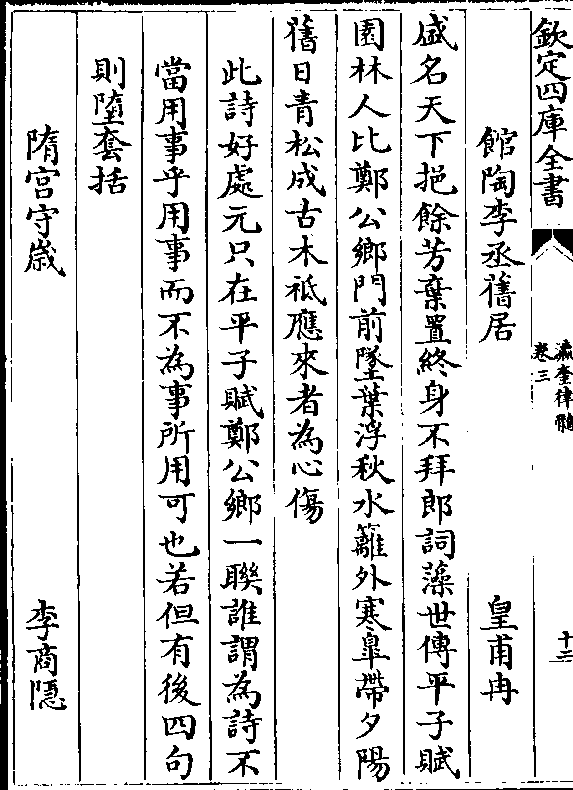 欽定四庫全書
瀛奎律髓
卷三
十二
館陶李丞舊居　皇甫冉
盛名天下挹餘芳棄置終身不拜郎詞藻世傳平子賦
園林人比鄭公鄉門前墜葉浮秋水籬外寒臯帶夕陽
舊日青松成古木祗應來者為心傷
此詩好處元只在平子賦鄭公鄉一聯誰謂為詩不
當用事乎用事而不為事所用可也若但有後四句
則墮套括
隋宫守歲　李商隠